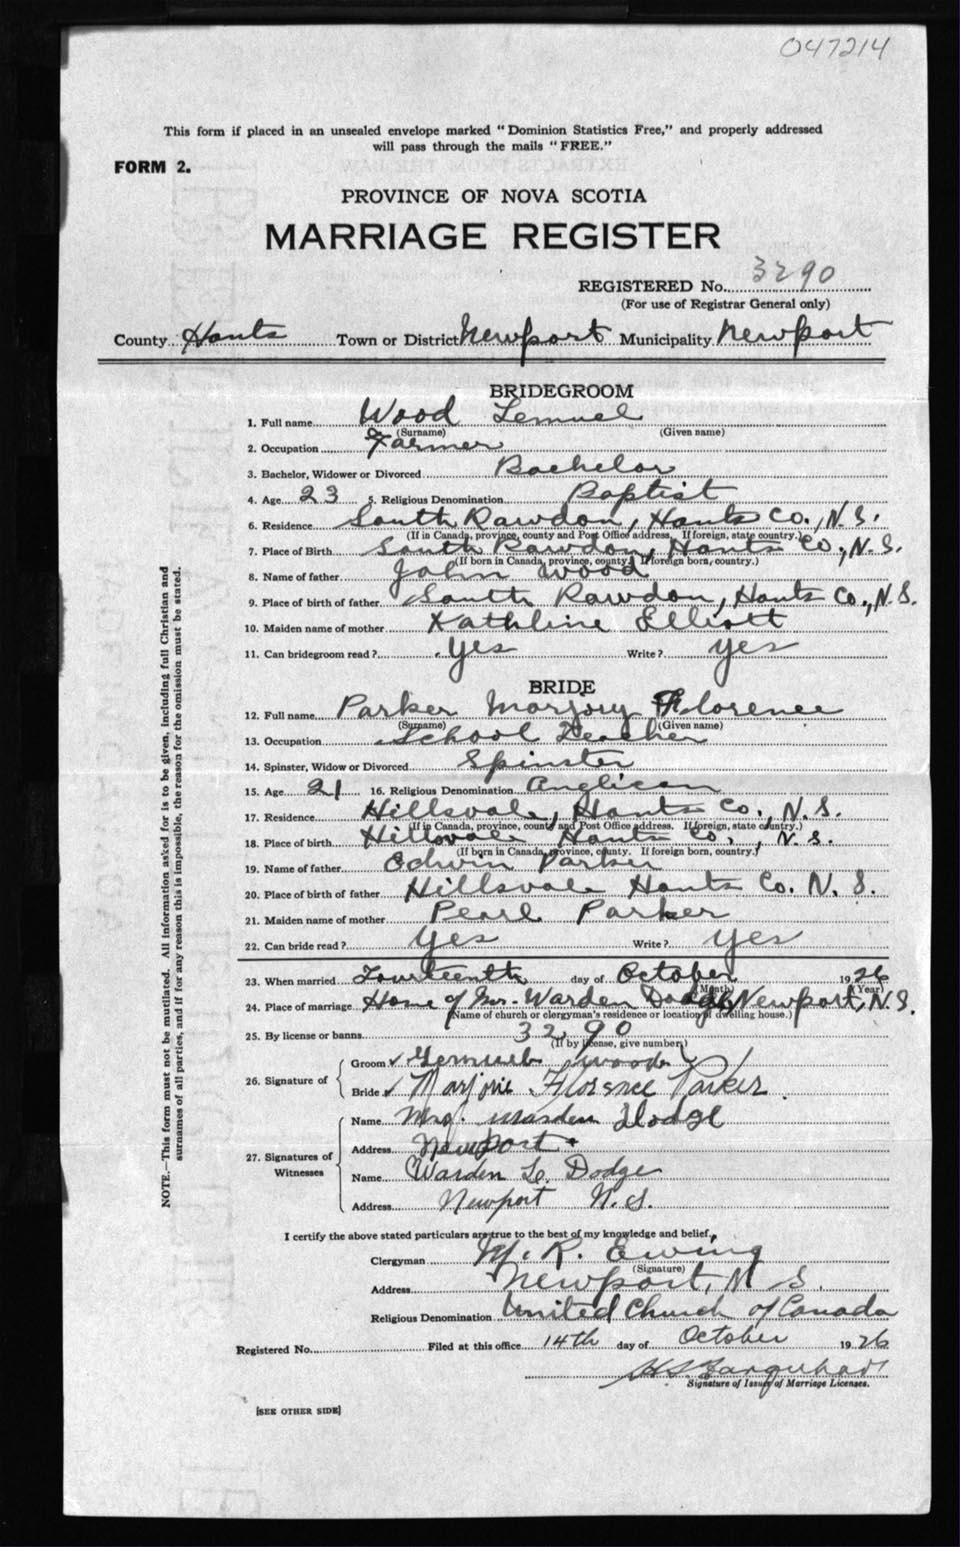 047214
This form if placed in an unsealed envelope marked "Dominion Statistics Free," and properly addressed
will pass through the mails "FREE."
FORM 2.
PROVINCE OF NOVA SCOTIA
MARRIAGE REGISTER
REGISTERED No. 3290
(For use of Registrar General only)
County Hants Town or District Newport Municipality Newport
BRIDEGROOM
1. Full name Wood Lemuel
(Surname) (Given name)
2. Occupation Farmer
3. Bachelor, Widower or Divorced Bachelor
4. Age 23 5. Religious Denomination Baptist
6. Residence South Rawdon, Hants Co., N.S.
(If in Canada, province, county and Post Office address. If foreign, state country.)
7. Place of Birth South Rawdon, Hants Co., N.S.
(If born in Canada, province, county. If foreign born, country.)
8. Name of father John Wood
9. Place of birth of father South Rawdon, Hants Co., N.S.
10. Maiden name of mother Kathline Elliott
11. Can bridegroom read? yes Write? yes
BRIDE
12. Full name Parker Marjory Florence
(Surname) (Given name)
13. Occupation School Teacher
14. Spinster, Widow or Divorced Spinster
15. Age 21 16. Religious Denomination Anglican
17. Residence Hillsvale, Hants Co., N.S.
(If in Canada, province, county and Post Office address. If foreign, state country.)
18. Place of birth Hillsvale Hants Co., N.S.
(If born in Canada, province, county. If foreign born, country.)
19. Name of father Edwin Parker
20. Place of birth of father Hillsvale Hants Co. N.S.
21. Maiden name of mother Pearl Parker
22. Can bride read? yes Write? yes
23. When married Fourteenth day of October 1926
(Month) (Year)
24. Place of marriage Home of Mr. Warden Dodge, Newport, N.S.
(Name of church or clergyman's residence or location of dwelling house.)
25. By license or banns 3290
(If by license, give number)
26. Signature of
Groom Lemuel Wood
Bride Marjorie Florence Parker
27. Signatures of Witnesses
Name Mrs. Warden Dodge
Address Newport
Name Warden Dodge
Address Newport N.S.
I certify the above stated particulars are true to the best of my knowledge and belief,
Clergyman M. R. Ewing
(Signature)
Address Newport, N S.
Religious Denomination United Church of Canada
Registered No. Filed at this office 14th day of October 1926
H S Farquhar
Signature of Issuer of Marriage Licenses.
[SEE OTHER SIDE]
NOTE.—This form must not be mutilated. All information asked for is to be given, including full Christian and
surnames of all parties, and if for any reason this is impossible, the reason for the omission must be stated.